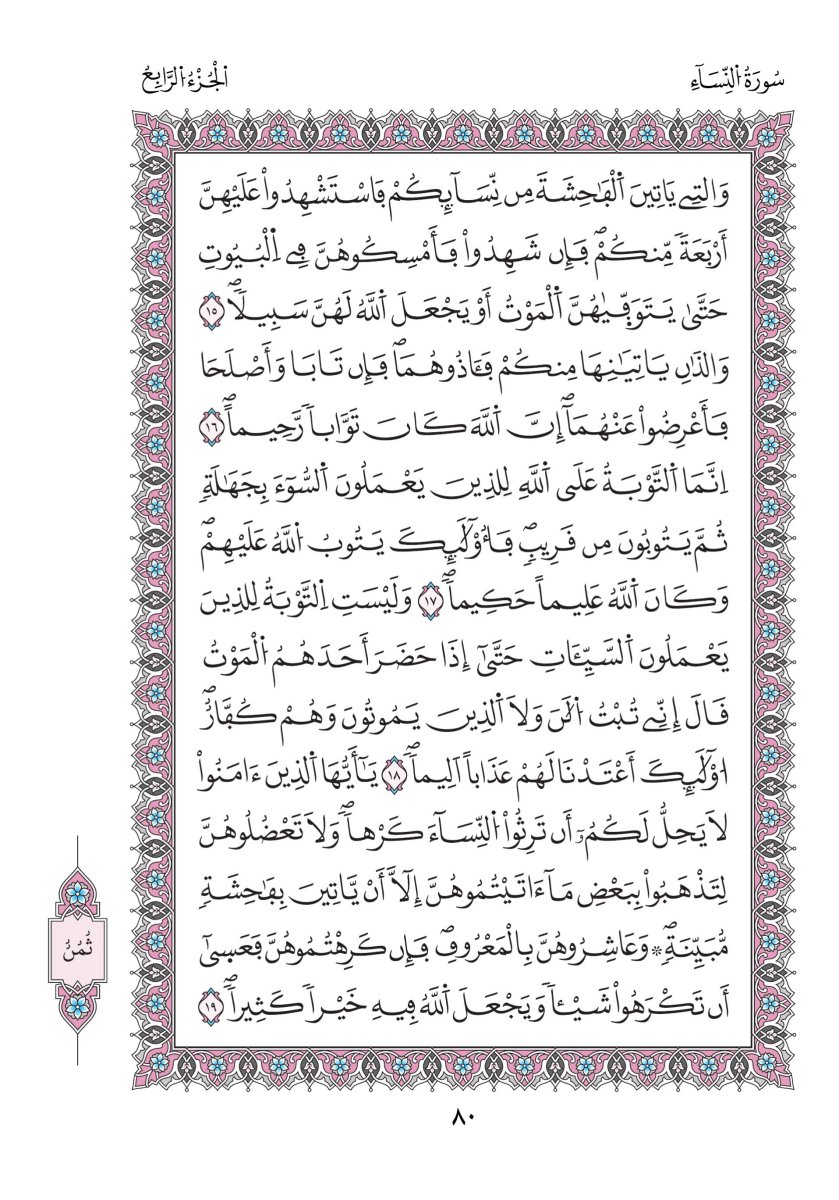 سُورَةُ اُ۬لنِّسَآءِ
اَ۬لْجُزْءُ اُ۬لرَّابِعُ
وَالتِے يَاتِينَ اَ۬لْفَٰحِشَةَ مِن نِّسَآئِكُمْ فَاسْتَشْهِدُواْ عَلَيْهِنَّ
أَرْبَعَةٗ مِّنكُمْۖ فَإِن شَهِدُواْ فَأَمْسِكُوهُنَّ فِے اِ۬لْبُيُوتِ
حَتَّىٰ يَتَوَفّ۪يٰهُنَّ اَ۬لْمَوْتُ أَوْ يَجْعَلَ اَ۬للَّهُ لَهُنَّ سَبِيلاٗۖ ١٥
وَالذَٰنِ يَاتِيَٰنِهَا مِنكُمْ فَـَٔاذُوهُمَاۖ فَإِن تَابَا وَأَصْلَحَا
فَأَعْرِضُواْ عَنْهُمَآۖ إِنَّ اَ۬للَّهَ كَانَ تَوَّاباٗ رَّحِيماًۖ ١٦
اِنَّمَا اَ۬لتَّوْبَةُ عَلَي اَ۬للَّهِ لِلذِينَ يَعْمَلُونَ اَ۬لسُّوٓءَ بِجَهَٰلَةٖ
ثُمَّ يَتُوبُونَ مِن قَرِيبٖۖ فَأُوْلَٰٓئِكَ يَتُوبُ اُ۬للَّهُ عَلَيْهِمْۖ
وَكَانَ اَ۬للَّهُ عَلِيماً حَكِيماٗۖ ١٧ وَلَيْسَتِ اِ۬لتَّوْبَةُ لِلذِينَ
يَعْمَلُونَ اَ۬لسَّيِّـَٔاتِ حَتَّىٰٓ إِذَا حَضَرَ أَحَدَهُمُ اُ۬لْمَوْتُ
قَالَ إِنِّے تُبْتُ اُ۬لَٰنَ وَلَا اَ۬لذِينَ يَمُوتُونَ وَهُمْ كُفَّارٌۖ
ا۟وْلَٰٓئِكَ أَعْتَدْنَا لَهُمْ عَذَاباً اَلِيماٗۖ ١٨ يَٰٓأَيُّهَا اَ۬لذِينَ ءَامَنُواْ
لَا يَحِلُّ لَكُمُۥٓ أَن تَرِثُواْ اُ۬لنِّسَآءَ كَرْهاٗۖ وَلَا تَعْضُلُوهُنَّ
لِتَذْهَبُواْ بِبَعْضِ مَآ ءَاتَيْتُمُوهُنَّ إِلَّآ أَنْ يَّاتِينَ بِفَٰحِشَةٖ
مُّبَيِّنَةٖۖ ۞ وَعَاشِرُوهُنَّ بِالْمَعْرُوفِۖ فَإِن كَرِهْتُمُوهُنَّ فَعَس۪ىٰٓ
أَن تَكْرَهُواْ شَيْـٔاٗ وَيَجْعَلَ اَ۬للَّهُ فِيهِ خَيْراٗ كَثِيراٗۖ ١٩
ثُمُنُ
٨٠